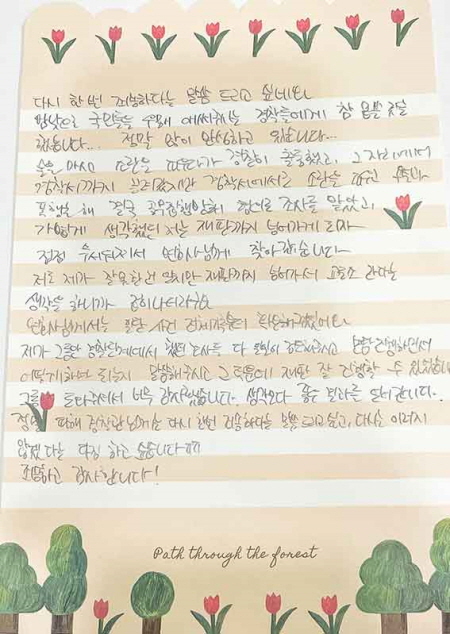 다시 한번 죄송하다는 말씀 드리고 싶네요
밤낮으로 국민들을 위해 애써주시는 경찰들에게 참 못할 짓을
했습니다... 정말 많이 반성하고 있습니다...
술을 마시고 소란을 피우다가 경찰이 출동했고, 그 자리에서
경찰서까지 가게 소란을
결국 공무집행방해 혐의로 조사를 받았고,
가볍게 생각했던 저는 재판까지 넘어가게 되자
점점 무서워져서 변호사님께 찾아갔습니다
저도 제가 잘못한건 알지만 재판까지 넘어가서 교도소 간다는
생각을 하니까 겁이나더라구요
변호사님께서는 일단 사건 전체기록을 확인해주셨어요
제가 그동안 경찰단계에서 했던 조사들 다 검토해주시고 진행하면서
어떻게하면 되는지 말씀해주시고 그 덕분에 재판 잘 진행할 수 있었습니다
도와주셔서 너무 감사했습니다. 생각보다 좋은 결과를
정말 피해 경찰관님께는 다시 한번 죄송하다는 말씀 드리고 싶고, 다시는 이러지
않겠다는 다짐 하고 싶습니다
죄송하고 감사합니다!
Path through the forest